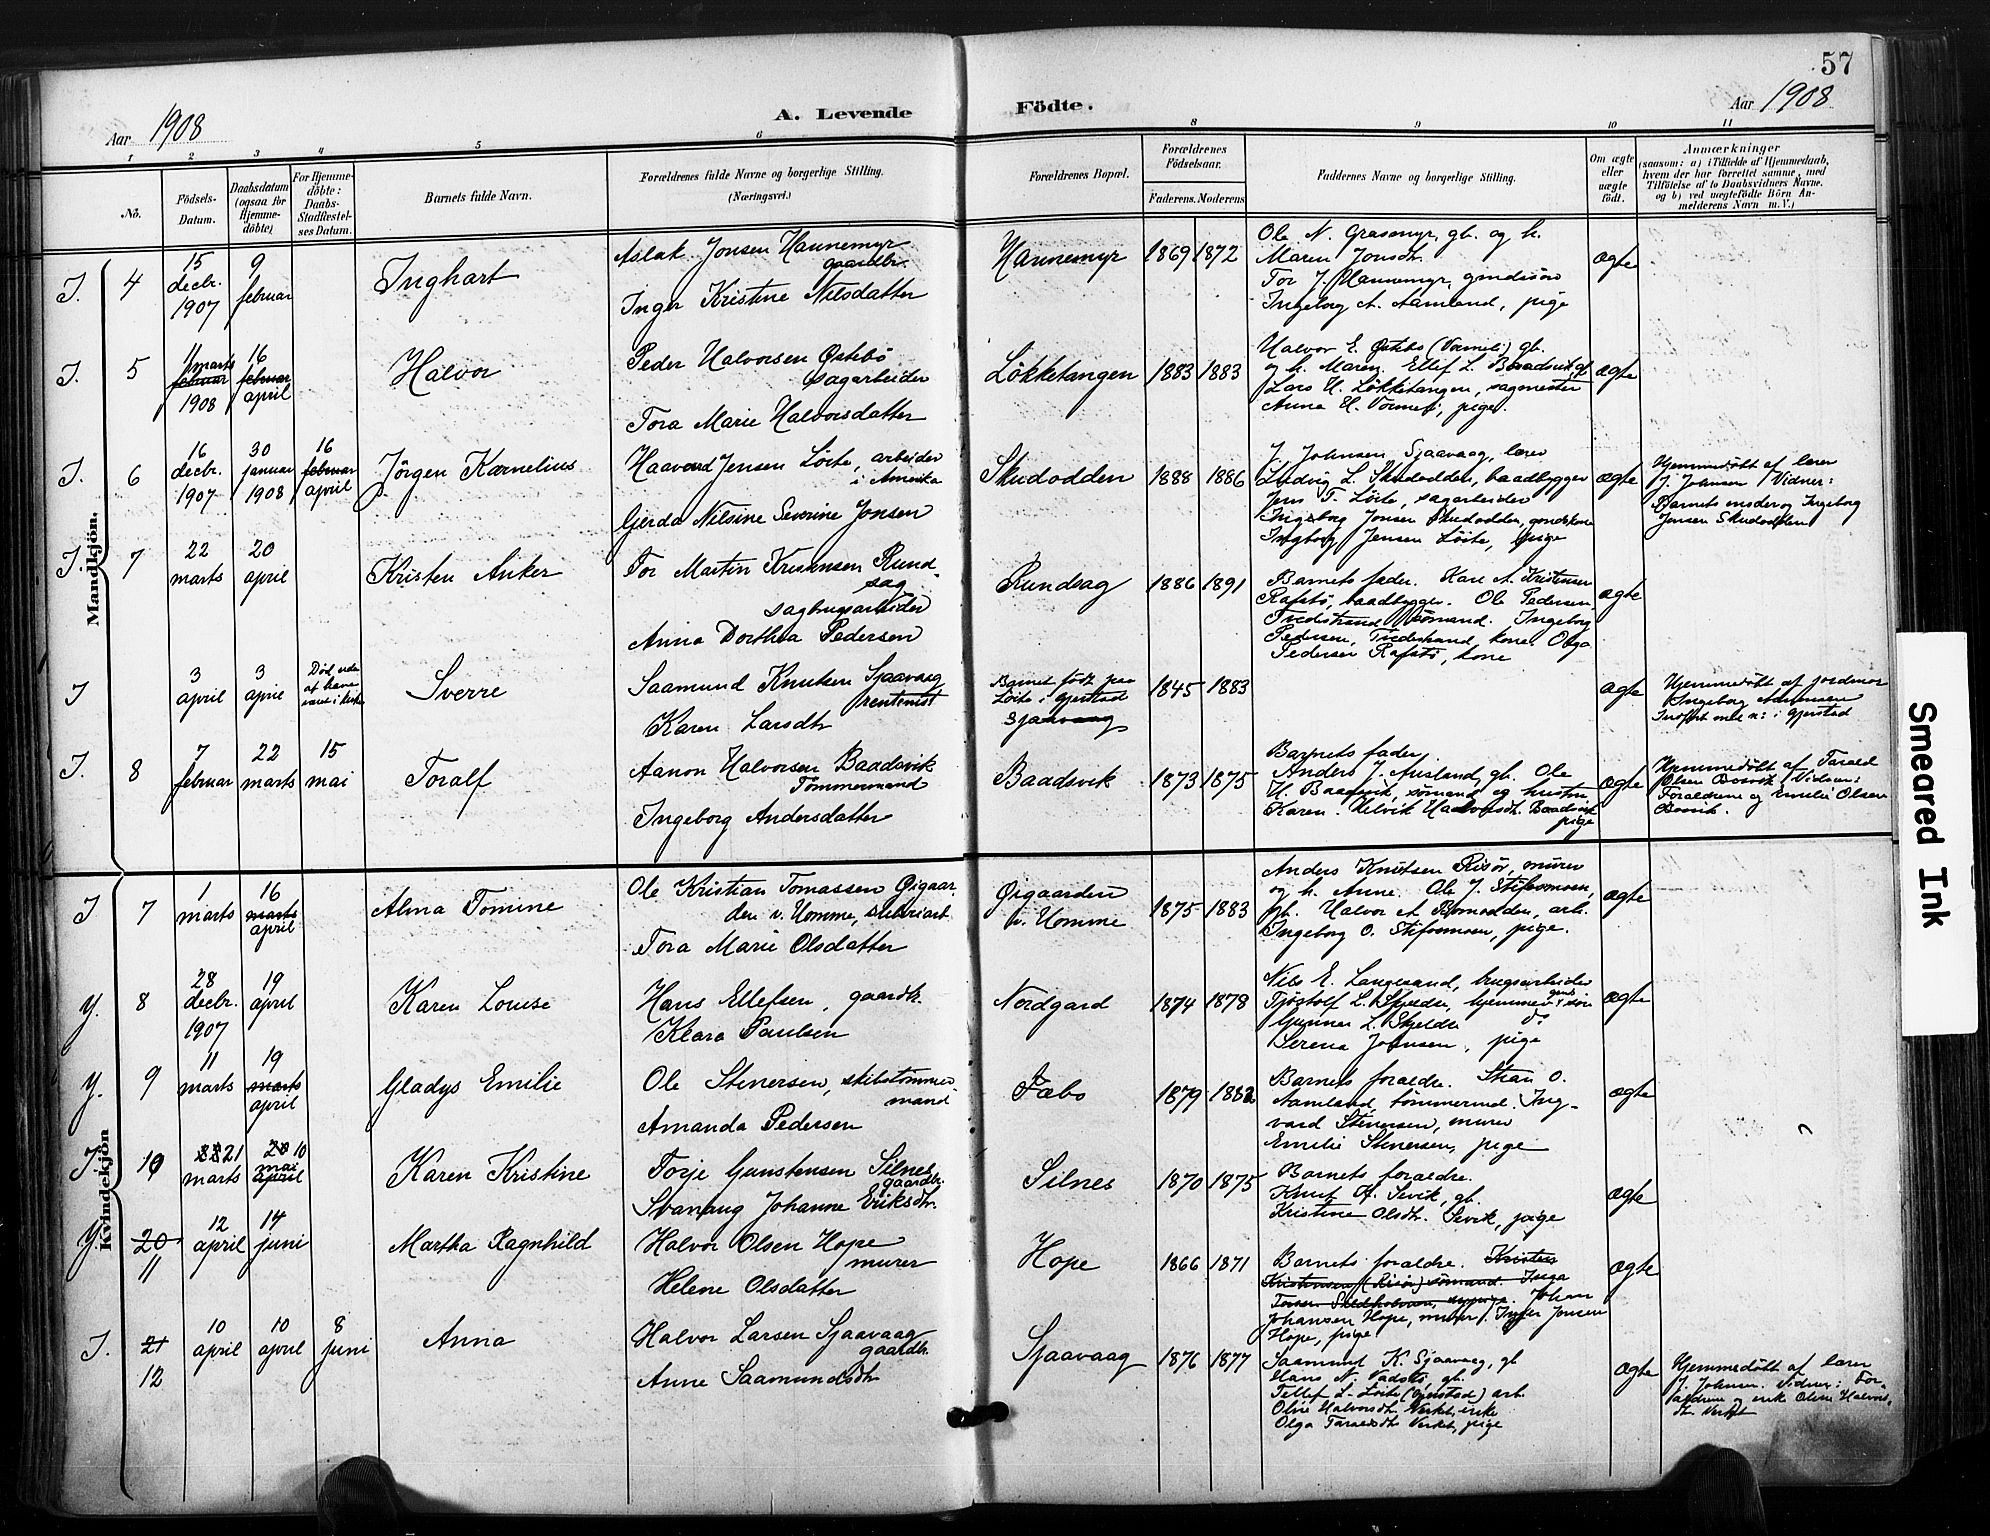 57
Aar 1908
A. Levende
Födte.
Aar 1908
1 2 3 4 5 6 8 9 10 11
No.
Födsels-
Datum.
Daabsdatum
(ogsaa for
Hjemme-
döbte)
For Hjemme-
döbte:
Daabs-
Stadfæstel-
ses Datum.
Barnets fulde Navn.
Forældrenes fulde Navne og borgerlige Stilling.
(Næringsvei.)
Forældrenes Bopæl.
Forældrenes
Födselsaar.
Faderens. Moderens
Faddernes Navne og borgerlige Stilling.
Om ægte
eller
uægte
födt.
Anmærkninger
(saasom: a) i Tilfælde af Hjemmedaab,
hvem der har forrettet samme, med
Tilföielse af to Daabsvidners Navne.
og b) ved uægtefödte Börn An-
melderens Navn m. V.)
Mandkjön.
I. 4
15
decbr.
1907
9
februar
Inghart
Aslak Jonsen Hannemyr
gaardbr.
Inger Kristine Nilsdatter
Hannemyr
1869 1872
Ole N. Grasmyr, gb. og h.
Maren Jonsdtr.
Tor J. Hannemyr, gmdssøn
Ingeborg A. Aamland, pige
ægte
I. 5
11
marts
februar
1908
16
februar
april
Halvor
Peder Halvorsen Østebö
sagarbeider
Tora Marie Halvorsdatter
Lökketangen
1883 1883
Halvor E. Östebö (Vormeli) gb.
og h. Maren. Ellef L. Baadsvik, gb.
Lars H. Lökketangen, sagmester
Anna H. Vormeli, pige.
ægte
I. 6
16
decbr.
1907
30
januar
1908
16
februar
april
Jörgen Kornelius
Haavard Jensen Löite, arbeider
i Amerika
Gjerda Nilsine Severine Jonsen
Skudodden
1888 1886
J. Johnsen Sjaavaag, lærer
Ludvig L. Skudodden, baadbygger
Jens T. Löite, sagarbeider
Ingeborg Jonsen Skudodden, gmdskone
Ingborg Jensen Löite, pige
ægte
Hjemmedöbt af lærer
J. Johnsen Vidner:
Barnets moder og Ingeborg
Jonsen Skudodden
I. 7
22
marts
20
april
Kristen Anker
Tor Martin Kristensen Rund-
sag
sagbrugsarbeider
Anna Dorthea Pedersen
Rundsag
1886 1891
Barnets fader. Kare A. Kristensen
Rafstö, baadbygger. Ole Pedersen
Tvedestrand sömand. Ingeborg
Pedersen, Tvedestrand, kone. Olga
Pedersen Rafstö, kone
ægte
I
3
april
3
april
Död uden
at have
været i kirke
Sverre
Saamund Knutsen Sjaavaag
rentenist
Karen Larsdtr
Barnet född paa
Löite i Gjerstad
Sjaavaag
1845 1883
ægte
Hjemmedöbt af jordmor
Ingeborg Aanonsen
Indfört mlb n: i Gjerstad
I. 8
7
februar
22
marts
15
mai
Toralf
Aanon Halvorsen Baadsvik
Tömmermand
Ingeborg Andersdatter
Baadsvik
1873 1875
Barnets fader.
Anders J. Ausland, gb. Ole
H. Baasvik, sömand og hustru
Karen. Helvik Halvorsdtr. Baadsvik
pige
ægte
Hjemmedöbt af Tarald
Olsen Bosvik. Vidner:
Forældrene og Emelie Olsen
Bosvik.
Kvindekjön
I 7
1
marts
16
marts
april
Alma Tomine
Ole Kristian Tomassen Øigaar-
den v. Homme, skibriarb
Tora Marie Olsdatter
Øigaarden
v. Homme
1875 1883
Anders Knutsen Risör, murer
og h. Anne. Ole J. Stifosmoen,
gb. Halvor A. Romodden, arb.
Ingeborg O. Stifosmoen, pige.
ægte
Y. 8
28
decbr.
1907
19
april
Karen Louise
Hans Ellefsen, gaardbr.
Klara Paulsen
Nordgard
1874 1878
Nils E. Langesand, brugsarbeider
Tjöstolf L. Skjeldsö, hjemmev. gmdssön
Gunner L. Skjeldsö do
Serena Johnsen, pige
ægte
Y. 9
11
marts
19
marts
april
Gladys Emilie
Ole Stenersen, skibstömmer-
mand
Amanda Pedersen
Fæbo
1879 1882
Barnets foraldre. Stian O.
Aamland, tömmermd. Ing-
vard Stenersen, murer
Emilie Stenersen, pige
ægte
I. 10
21
marts
10
mai
april
Karen Kristine
Torje Gunstensen Silnes
gaardbr.
Svanaug Johanne Eriksdtr.
Silnes
1870 1875
Barnets foraldre.
Knut A. Sevik, gb.
Kristine Olsdtr. Sevik, pige
ægte
Y. 20
11
12
april
14
juni
Martha Ragnhild
Halvor Olsen Hope
murer
Helene Olsdatter
Hope
1866 1871
Barnets foraldre. Kristen
Kristensen (Risör) sömand. Inga
Johan
Johansen Hope, murer. Inger Jonsen
Hope, pige
ægte
I. 21
12
10
april
10
april
8
juni
Anna
Halvor Larsen Sjaavaag
gaardbr.
Anne Saamundsdtr
Sjaavaag
1876 1877
Saamund K. Sjaavaag, gb
Hans N. Fadstö, gb.
Tellef L. Löite (Gjerstad) arb.
Oline Halvorsdtr. Verket, enke
Olga Taraldsdtr Verket, pige
ægte
Hjemmedöbt af lærer
J. Johnsen. Vidner: For-
ældrene og enke Oline Halvors-
dtr. Verket
Smeared Ink